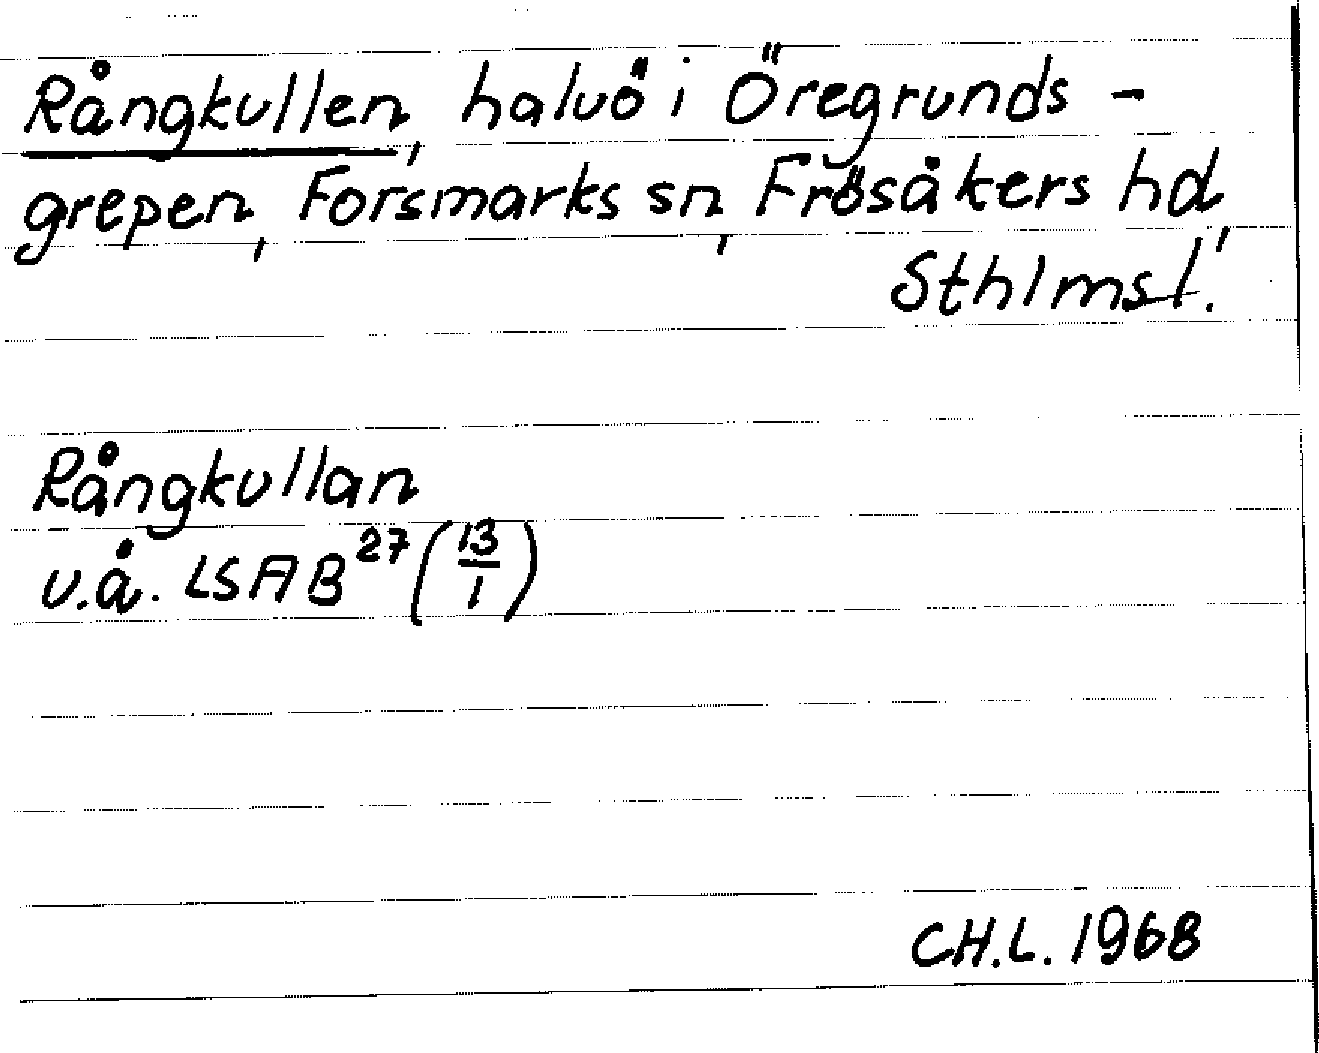 Rångkullen, halvö i Öregrunds-
grepen, Forsmarks sn, Frösåkers hd,
Sthlms l.
Rångkullan
u.å. LSA B²⁷ (13/1)
CH.L. 1968